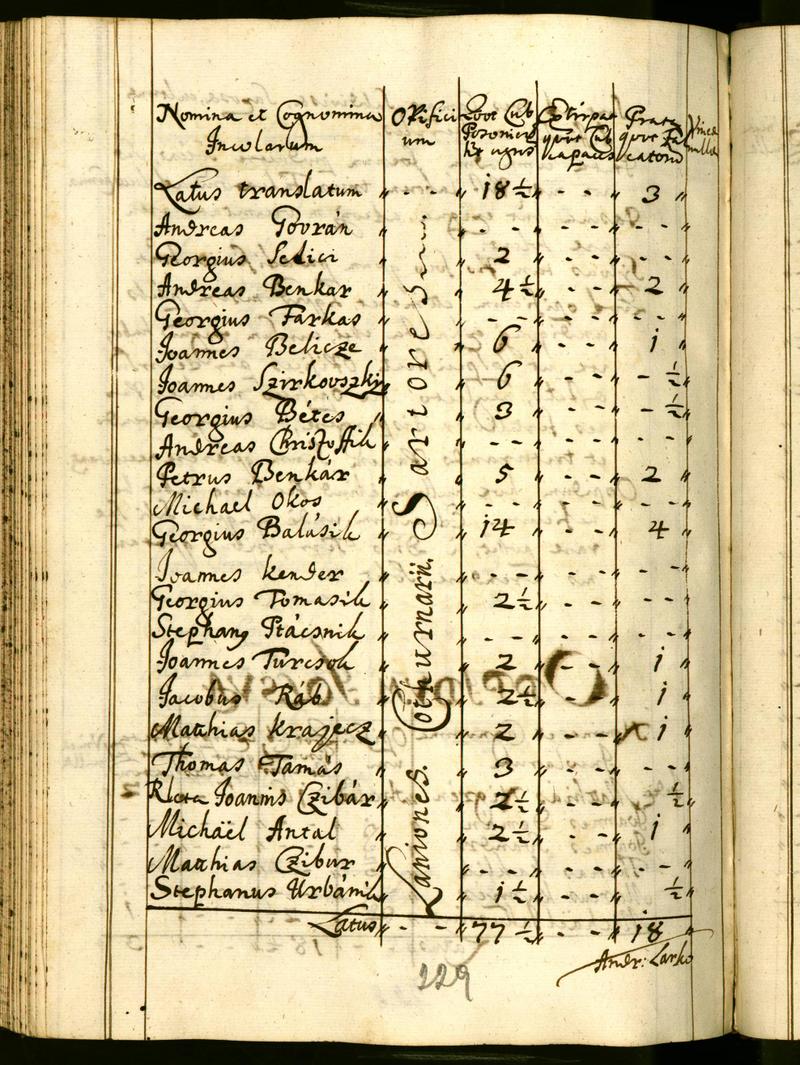 Nomina et Cognomina Incolarum Opifici um Quot Cub Posonien Extirpat quot Cub capaces Prata quot Fal catorum
Latus translatum " - - " 18 1/2 " - - " 3 "
Andreas Govrán " " - - " - - " - - "
Georgius Sedici " " 2 " - - " - - "
Andreas Benkar " " 4 1/2 " - - " 2 "
Georgius Farkas " " - - " - - " - - "
Joannes Belicze " " 6 " - - " 1 "
Joannes Szirkovszki " " 6 " - - " - 1/2 "
Georgius Bétes " " 3 " - - " - 1/2 "
Andreas Christoffik " " - - " - - " - - "
Petrus Benkár " " 5 " - - " 2 "
Michael Okos " " - - " - - " - - "
Georgius Balásik " " 14 " - - " 4 "
Joannes Kender " " - - " - - " - - "
Georgius Tomasik " " 2 1/2 " - - " - - "
Stephanus Ptácsnik " " - - " - - " - - "
Joannes Turcsok " " 2 " - - " 1 "
Jacobus Ráb " " 2 1/2 " - - " 1 "
Matthias Krajecz " " 2 " - - " 1 "
Thomas Tamás " " 3 " - - " - - "
Rlcta Joannis Czibár " " 2 1/2 " - - " 1/2 "
Michaël Antal " " 2 1/2 " - - " 1 "
Matthias Czibur " " - - " - - " - - "
Stephanus Urbánik " " 1 1/2 " - - " 1/2 "
Laniones. Cothurnarii. Sartores
Latus " - - " 77 1/2 " - - " 18 "
Andr: Larko
229